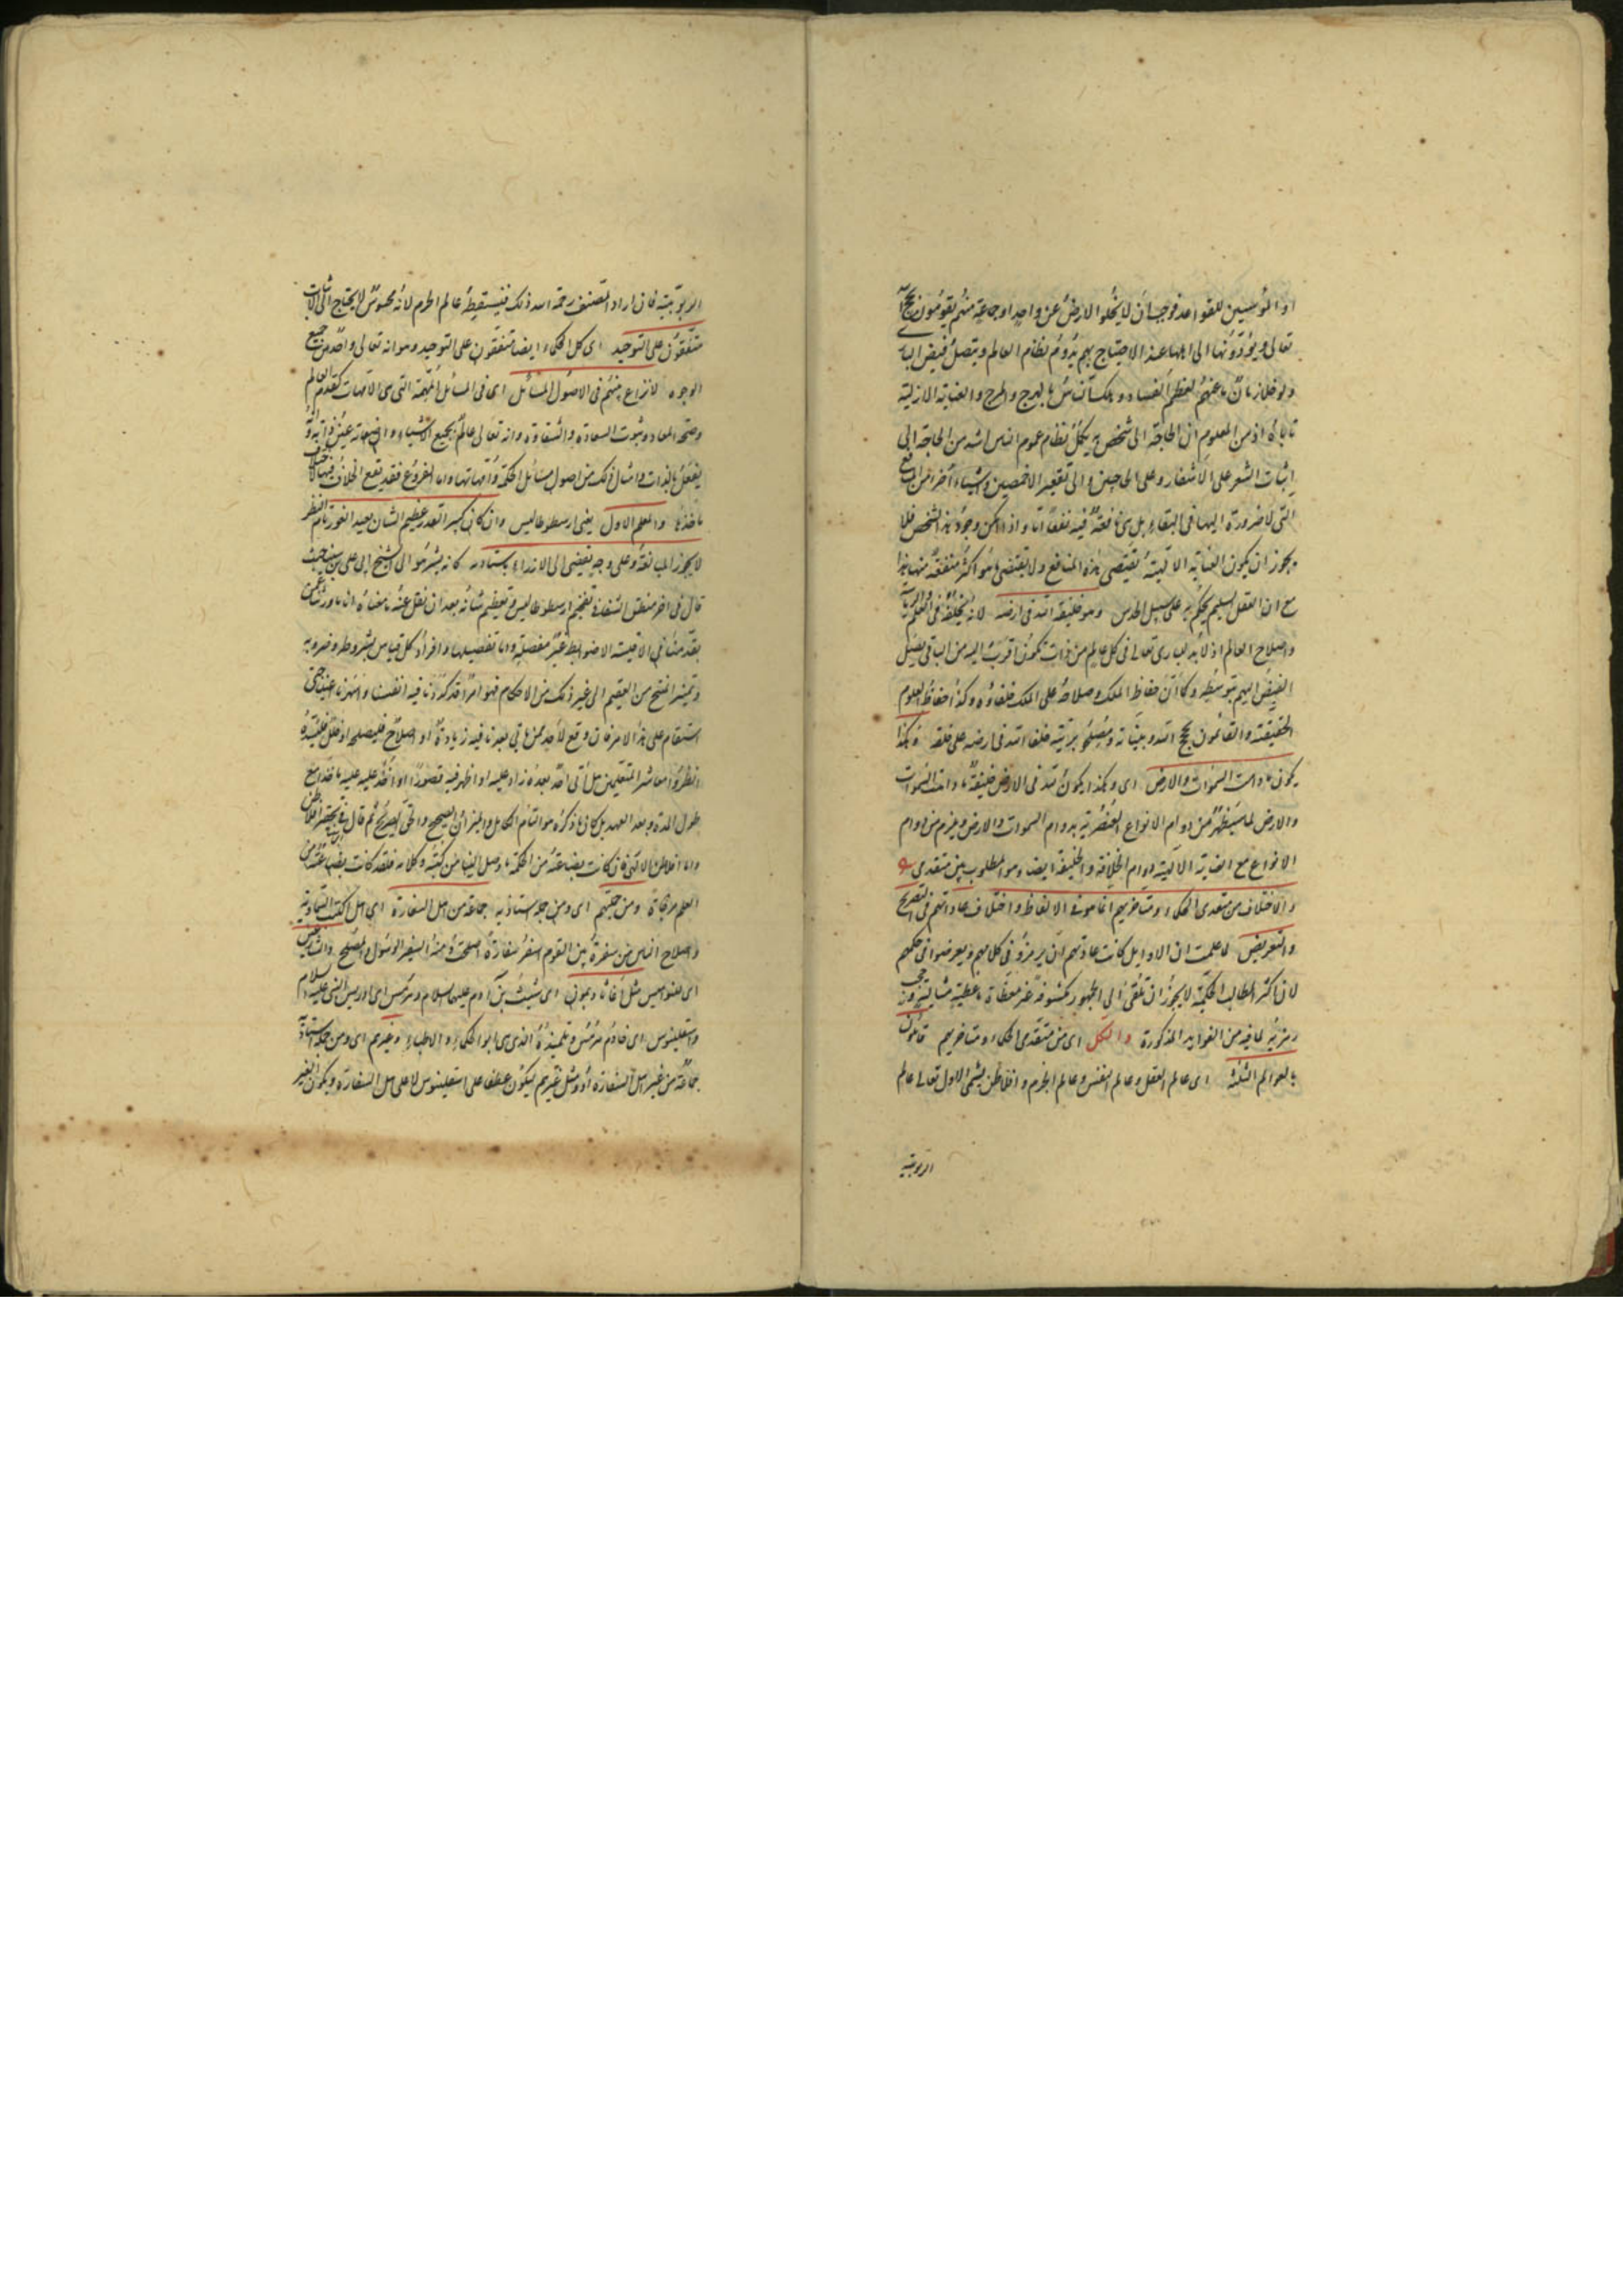 او المؤسسين للقواعد فوجب ان لا يخلو الارض عن واحد او جماعة منهم يقومون بحجج الله
تعالى ويؤدونها الى اهلها عند الاحتياج بهم يدوم نظام العالم ويتصل فيض الباري
ولو خلا زمان ما عنهم لعظم الفساد وهلك الناس بالهرج والمرج والعناية الازلية
تاباه اذ من المعلوم ان الحاجة الى شخص به يكمل نظام عموم الناس اشد من الحاجة الى
اثبات الشعر على الاشفار وعلى الحاجبين والى تقعير الاخمصين واشياء اخر من المنافع
التى لا ضرورة اليها فى البقاء بل هى نافعة فيه نفعا ما واذا امكن وجود هذا الشخص فلا
يجوز ان يكون العناية الالهية تقتضى هذه المنافع ولا يقتضى ما هو اكثر منفعة منها هذا
مع ان العقل السليم يحكم به على سبيل الحدس وهو خليفة الله فى ارضه لانه يخلفه فى العلم والرياسة
واصلاح العالم اذ لا بد للبارى تعالى فى كل عالم من ذات تكون اقرب اليه من الباقى يصل
الفيض اليهم بتوسطه وكما ان حفاظ الملك وصلاحه على الملك خلفاؤه وكذا حفاظ العلوم
الحقيقية والقائمون بحجج الله وبيناته ومصلحو بريته خلفاء الله فى ارضه على خلقه وهكذا
يكون ما دامت السموات والارض اى وهكذا يكون لله فى الارض خليفة ما دامت السموات
والارض لما سيظهر من دوام الانواع العنصرية بدوام السموات والارض ويلزم من دوام
الانواع مع العناية الالهية دوام الخلافة والخليفة ايضا وهو المطلوب بين متقدمى
والاختلاف من متقدمى الحكماء ومتاخريهم انما هو فى الالفاظ واختلاف عاداتهم فى التصريح
والتعريض لما علمت ان الاوايل كانت عادتهم ان يرمزوا فى كلامهم ويعرضوا فى حكمهم
لان اكثر المطالب الحكمية لا يجوز ان تلقى الى الجمهور مكشوفة غير مغطاة باغطية مثالية وحجب
رمزية لما فيه من الفوايد المذكورة والكل اى من متقدمى الحكماء ومتاخريهم قائلون
بالعوالم الثلثة اى عالم العقل وعالم النفس وعالم الجرم وافلاطن يسمى الاول تعالى عالم
الربوبية
الربوبية فان اراد المصنف رحمه الله ذلك فيسقط عالم الجرم لانه محسوس لا يحتاج الى الاثبات
متفقون على التوحيد اى كل الحكماء ايضا متفقون على التوحيد وهو انه تعالى واحد من جميع
الوجوه لا نزاع بينهم فى الاصول المسائل اى فى المسائل المهمة التى هى الامهات كقدم العالم
وصحة المعاد وثبوت السعادة والشقاوة وانه تعالى عالم بجميع الاشياء وان صفاته عين ذاته وانه
يفعل بالذات وامثال ذلك من اصول مسائل الحكمة وامهاتها واما الفروع فقد يقع الخلاف فيها لاختلاف
ماخذها والمعلم الاول يعنى ارسطوطاليس وان كان كبير القدر عظيم الشان بعيد الغور تام النظر
لا يجوز المبالغة فيه على وجه يفضى الى الازراء باستاديه كانه يشير هو الى الشيخ ابى على بن سينا حيث
قال فى اخر منطق الشفاء تفخيم ارسطوطاليس وتعظيم شانه بعد ان نقل عنه ما معناه انا ما ورثنا عمن
تقدمنا فى الاقيسة الا ضوابط غير مفصلة واما تفصيلها وافراد كل قياس بشروطه وضروبه
وتمييز المنتج من العقيم الى غير ذلك من الاحكام فهو امر قد كددنا فيه انفسنا واسهرنا اعيننا حتى
استقام على هذا الامر فان وقع لاحد ممن ياتى بعدنا فيه زيادة او اصلاح فليصلحه او خلل فليسده
انظروا معاشر المتعلمين هل اتى احد بعده زاد عليه او اظهر فيه قصورا او اخذ عليه ماخذا مع
طول المدة وبعد العهد بل كان ما ذكره هو التام الكامل والميزان الصحيح والحق الصريح ثم قال فى تحقير افلاطن
واما افلاطن الالهى فان كانت بضاعته من الحكمة ما وصل الينا من كتبه وكلامه فلقد كانت بضاعته من
العلم مزجاة ومن جملتهم اى ومن جملة استاذيه جماعة من اهل السفارة اى اهل الكتب السماوية
واصلاح الناس من سفرة بين القوم اسفر سفارة اصلحت ومنه السفير الرسول والمصلح والشارعين
اى للنواميس مثل اغاثاذيمون اى شيث بن آدم عليهما السلام وهرمس اى ادريس النبى عليه السلام
واسقلينوس اى خادم هرمس وتلميذه الذى هو ابو الحكماء والاطباء وغيرهم اى ومن جملة استاذيه
جماعة من غير اهل السفارة او ومثل غيرهم ليكون عطفا على اسقلينوس لا على اهل السفارة ويكون الغير